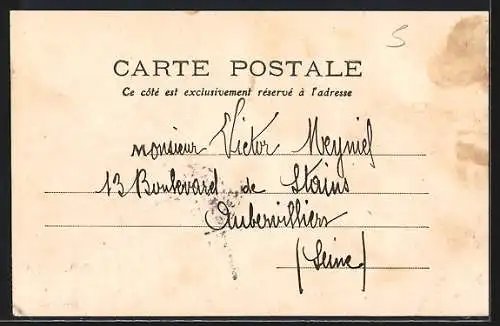 5
CARTE POSTALE
Ce côté est exclusivement réservé à l'adresse
Monsieur Victor Meynief
13 Boulevard de Stains
Aubervilliers
(Seine)